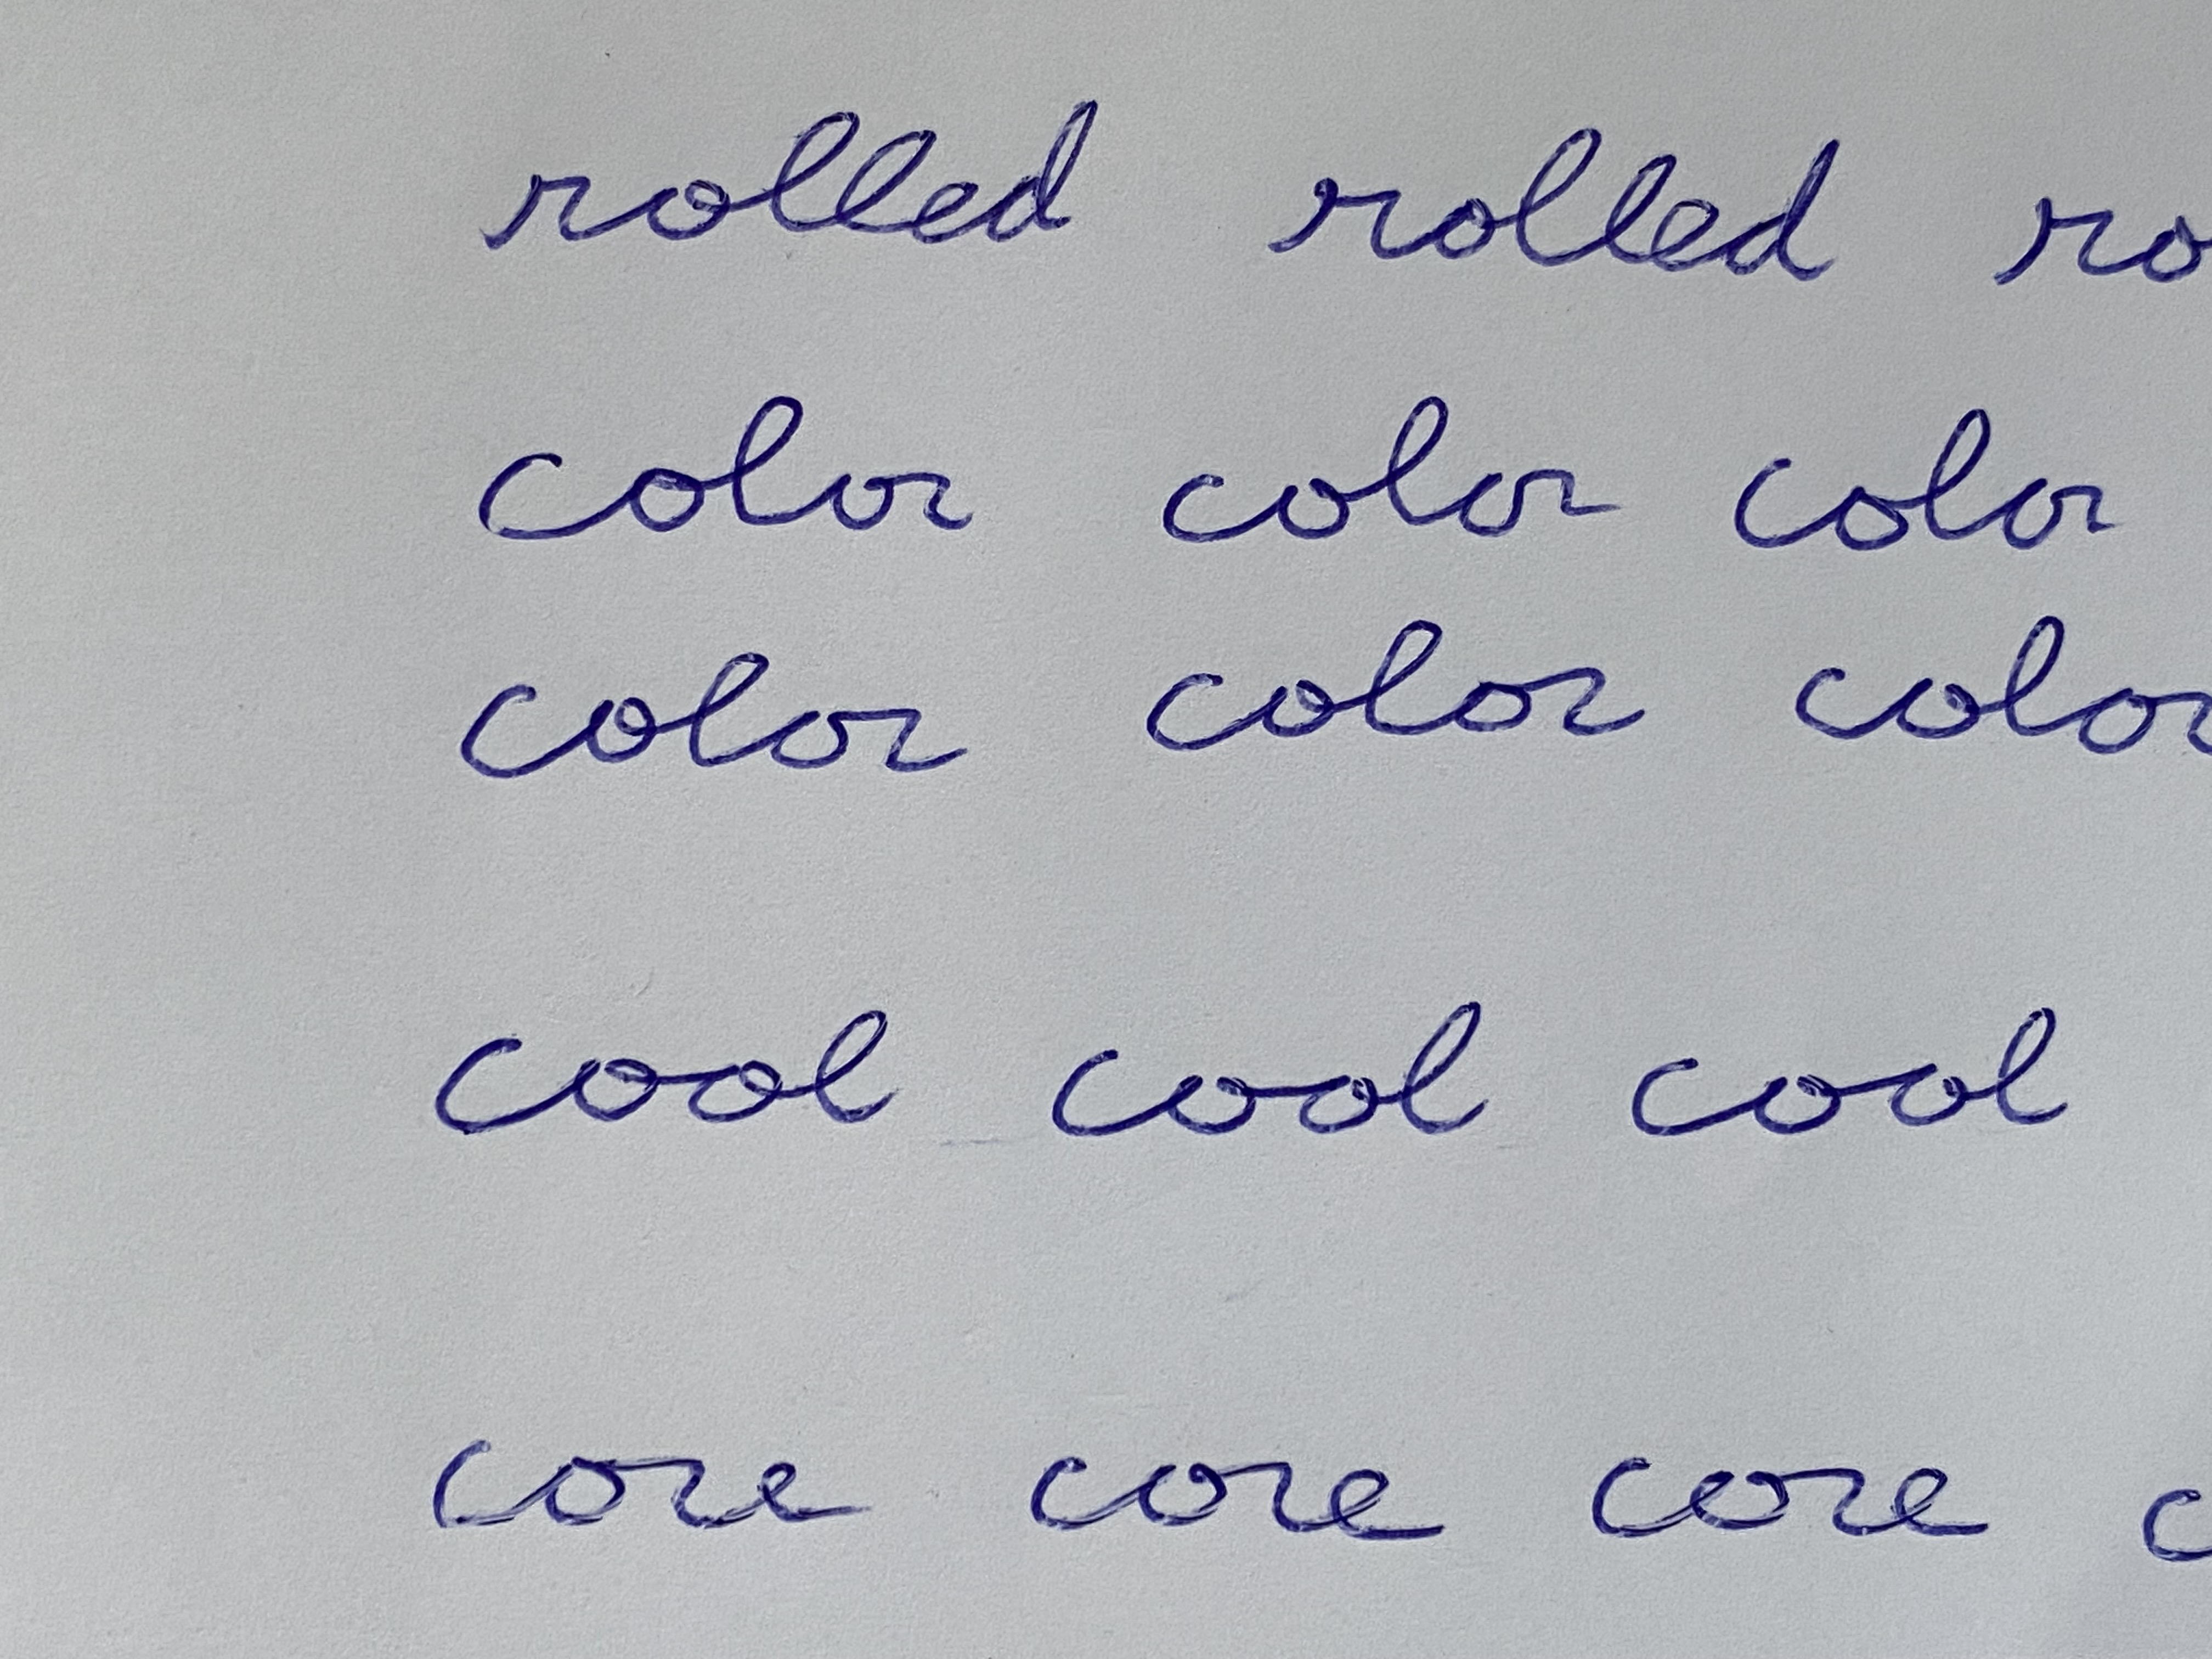 rolled rolled ro
color color color
color color color
cool cool cool
core core core c